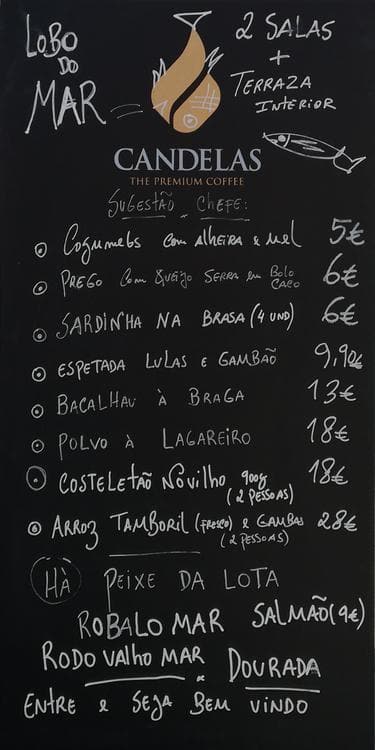 LOBO DO MAR
2 SALAS + TERRAZA INTERIOR
CANDELAS
THE PREMIUM COFFEE
SUGESTÃO CHEFE:
Cogumelos com Alheira e Mel 5€
PREGO com Queijo SERRA em Bolo CACO 6€
SARDINHA NA BRASA (4 UND) 6€
ESPETADA LULAS E GAMBÃO 9,90€
BACALHAU À BRAGA 13€
POLVO À LAGAREIRO 18€
COSTELETÃO NOVILHO 900g (2 PESSOAS) 18€
ARROZ TAMBORIL (FRESCO) E GAMBAS (2 PESSOAS) 28€
HÀ PEIXE DA LOTA
ROBALO MAR SALMÃO (9€)
RODOVALHO MAR DOURADA
ENTRE E SEJA BEM VINDO